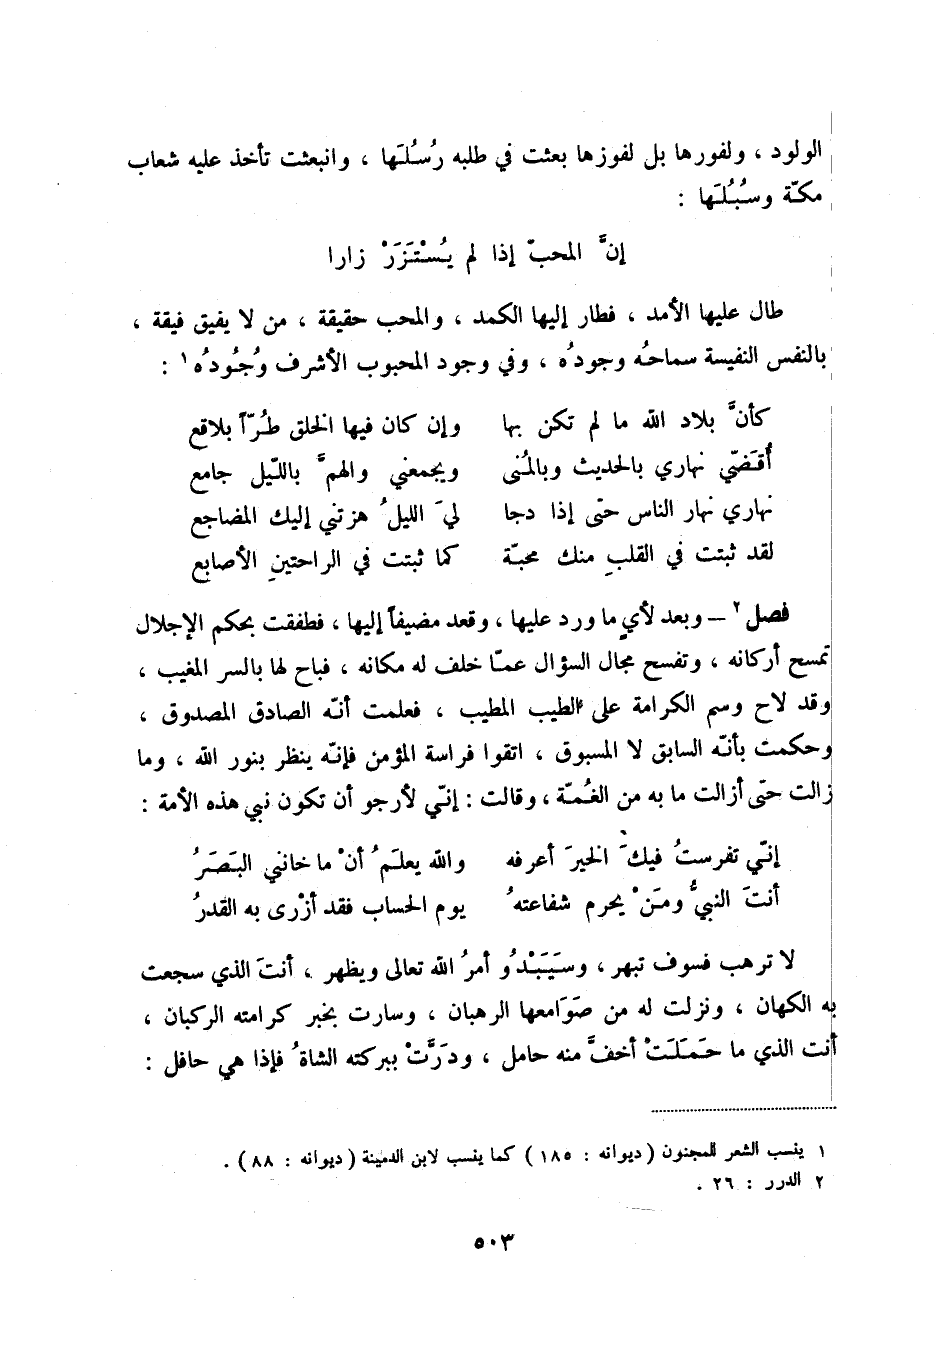 الولود ، ولفورها بل لفوزها بعثت في طلبه رُسُلَها ، وانبعثت تأخذ عليه شعاب
مكّة وسُبُلَها :
إنَّ المحبّ إذا لم يُسْتَزَرْ زارا
طال عليها الأمد ، فطار إليها الكمد ، والمحب حقيقة ، من لا يفيق فيقة ،
بالنفس النفيسة سماحُه وجودُه ، وفي وجود المحبوب الأشرف وُجُودُه ١ :
كأنَّ بلاد الله ما لم تكن بها وإن كان فيها الخلق طُرّاً بلاقع
أُقَضّي نهاري بالحديث وبالمُنى ويجمعني والهمَّ بالليل جامع
نهاري نهار الناس حتى إذا دجا ليَ الليلُ هزتني إليك المضاجع
لقد ثبتت في القلبِ منك محبّة كما ثبتت في الراحتينِ الأصابع
فصل ٢ – وبعد لأيٍ ما ورد عليها ، وقعد مضيفاً إليها ، فطفقت بحكم الإجلال
تمسح أركانه ، وتفسح مجال السؤال عمّا خلف له مكانه ، فباح لها بالسر المغيب ،
وقد لاح وسم الكرامة على الطيب المطيب ، فعلمت أنّه الصادق المصدوق ،
وحكمت بأنّه السابق لا المسبوق ، اتقوا فراسة المؤمن فإنّه ينظر بنور الله ، وما
زالت حتّى أزالت ما به من الغُمّة ، وقالت : إنّي لأرجو أن تكون نبي هذه الأمة :
إنّي تفرستُ فيكَ الخيرَ أعرفه والله يعلَمُ أنْ ما خانني البَصَرُ
أنتَ النبيُّ ومَنْ يحرم شفاعتهُ يوم الحساب فقد أزْرى به القدرُ
لا ترهب فسوف تبهر ، وسيَبْدُو أمرُ الله تعالى ويظهر ، أنتَ الذي سجعت
به الكهان ، ونزلت له من صَوَامعها الرهبان ، وسارت بخبر كرامته الركبان ،
أنت الذي ما حَمَلَتْ أخفَّ منه حامل ، ودرَّتْ ببركته الشاةُ فإذا هي حافل :
١ ينسب الشعر للمجنون ( ديوانه : ١٨٥ ) كما ينسب لابن الدمينة ( ديوانه : ٨٨ ) .
٢ الدرر : ٢٦ .
٥٠٣